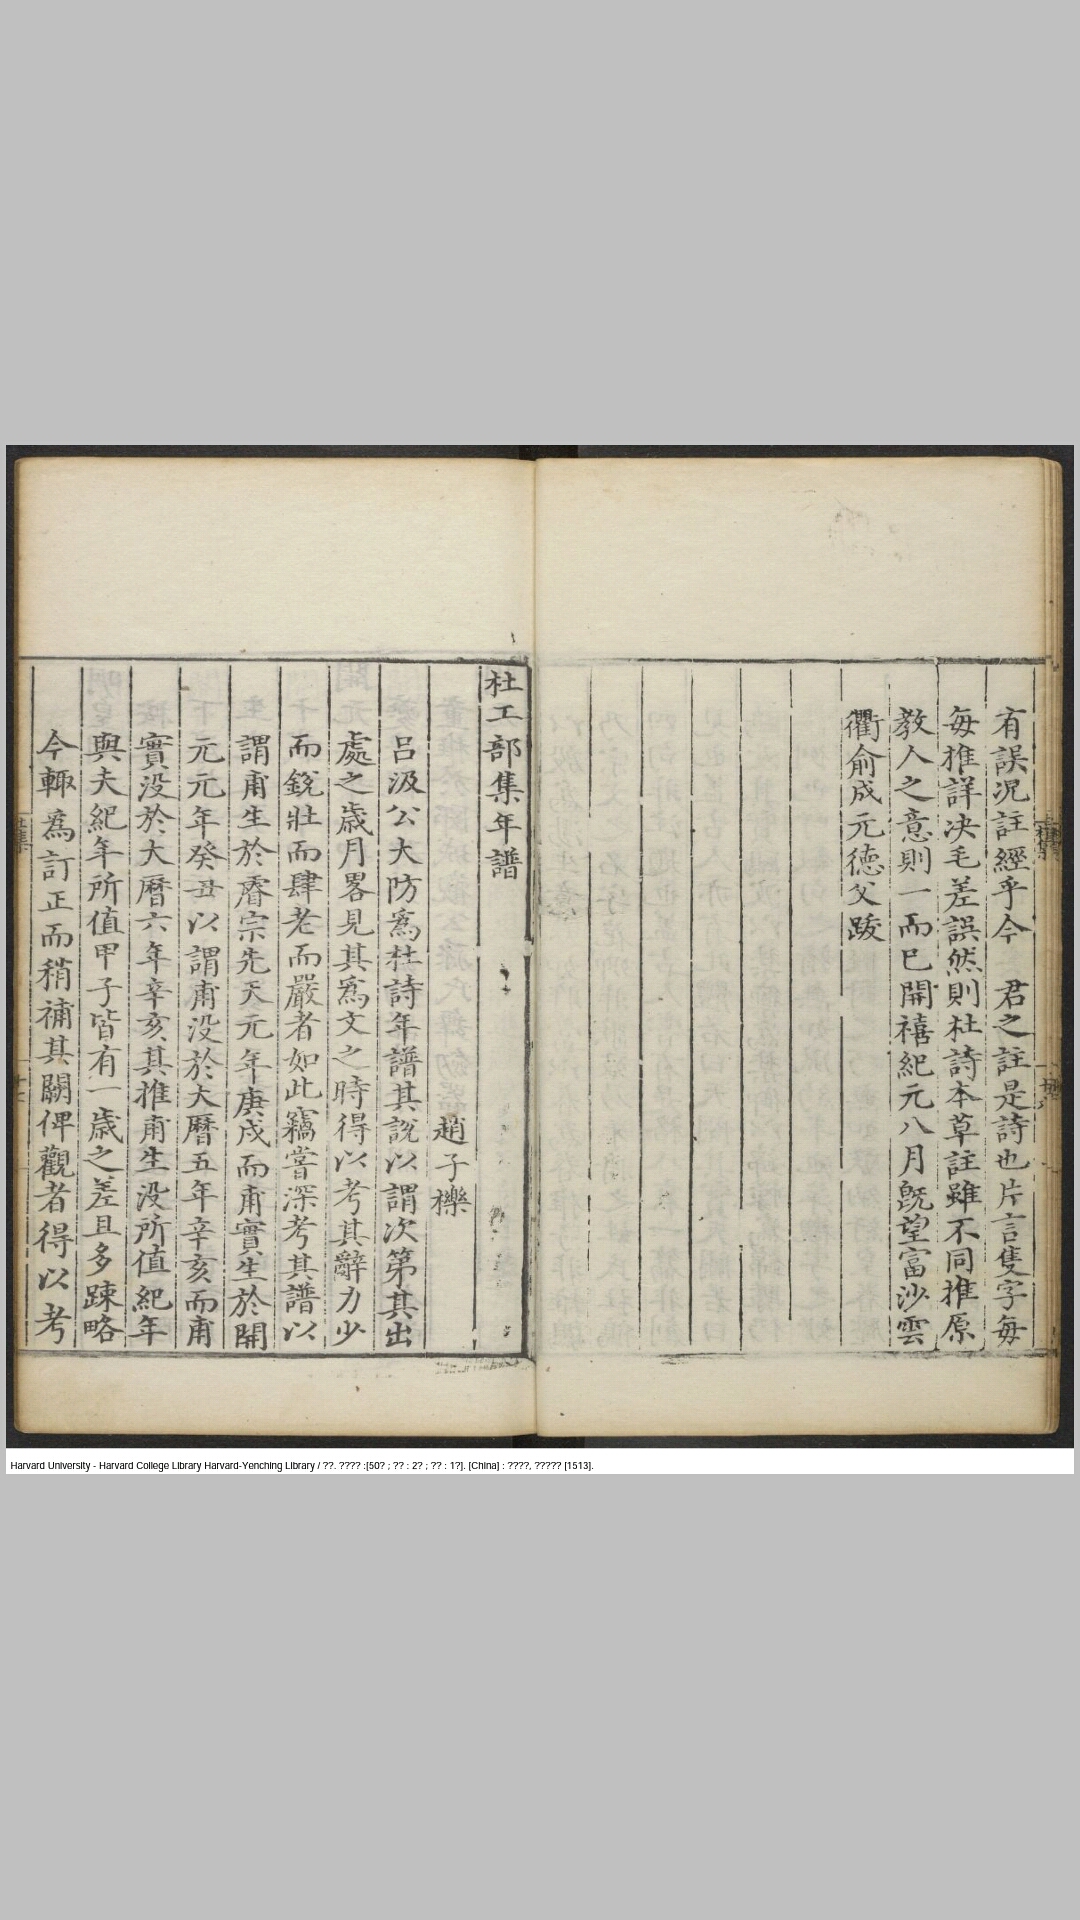 有誤況註經乎今　君之註是詩也片言隻字毎
毎推詳决毛差誤然則杜詩本草註雖不同推原
教人之意則一而已開禧紀元八月旣望富沙雲
衢俞成元德父跋
杜工部集年譜
趙子櫟
呂汲公大防爲杜詩年譜其説以謂次第其出
處之歲月畧見其爲文之時得以考其辭力少
而銳壯而肆老而嚴者如此竊嘗深考其譜以
謂甫生於睿宗先天元年庚戌而甫實生於開
元元年癸丑以謂甫没於大曆五年辛亥而甫
實没於大曆六年辛亥其推甫生没所值紀年
與夫紀年所值甲子皆有一歲之差且多踈略
今輒爲訂正而稍補其闕俾觀者得以考
Harvard University - Harvard College Library Harvard-Yenching Library / ??. ???? :[50? ; ?? : 2? ; ?? : 1?]. [China] : ????, ????? [1513].